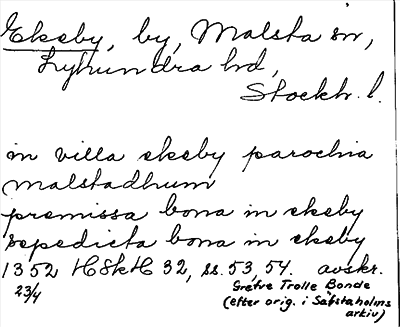 Ekeby, by, Malsta sn,
Lyhundra hd,
Stockh. l.
in villa ekeby parochia
malstadhum
premissa bona in ekeby
sepedicta bona in ekeby
1352 HSkH 32, ss. 53, 54. avskr.
23/4 Grefve Trolle Bonde
(efter orig. i Säfstaholms
arkiv)